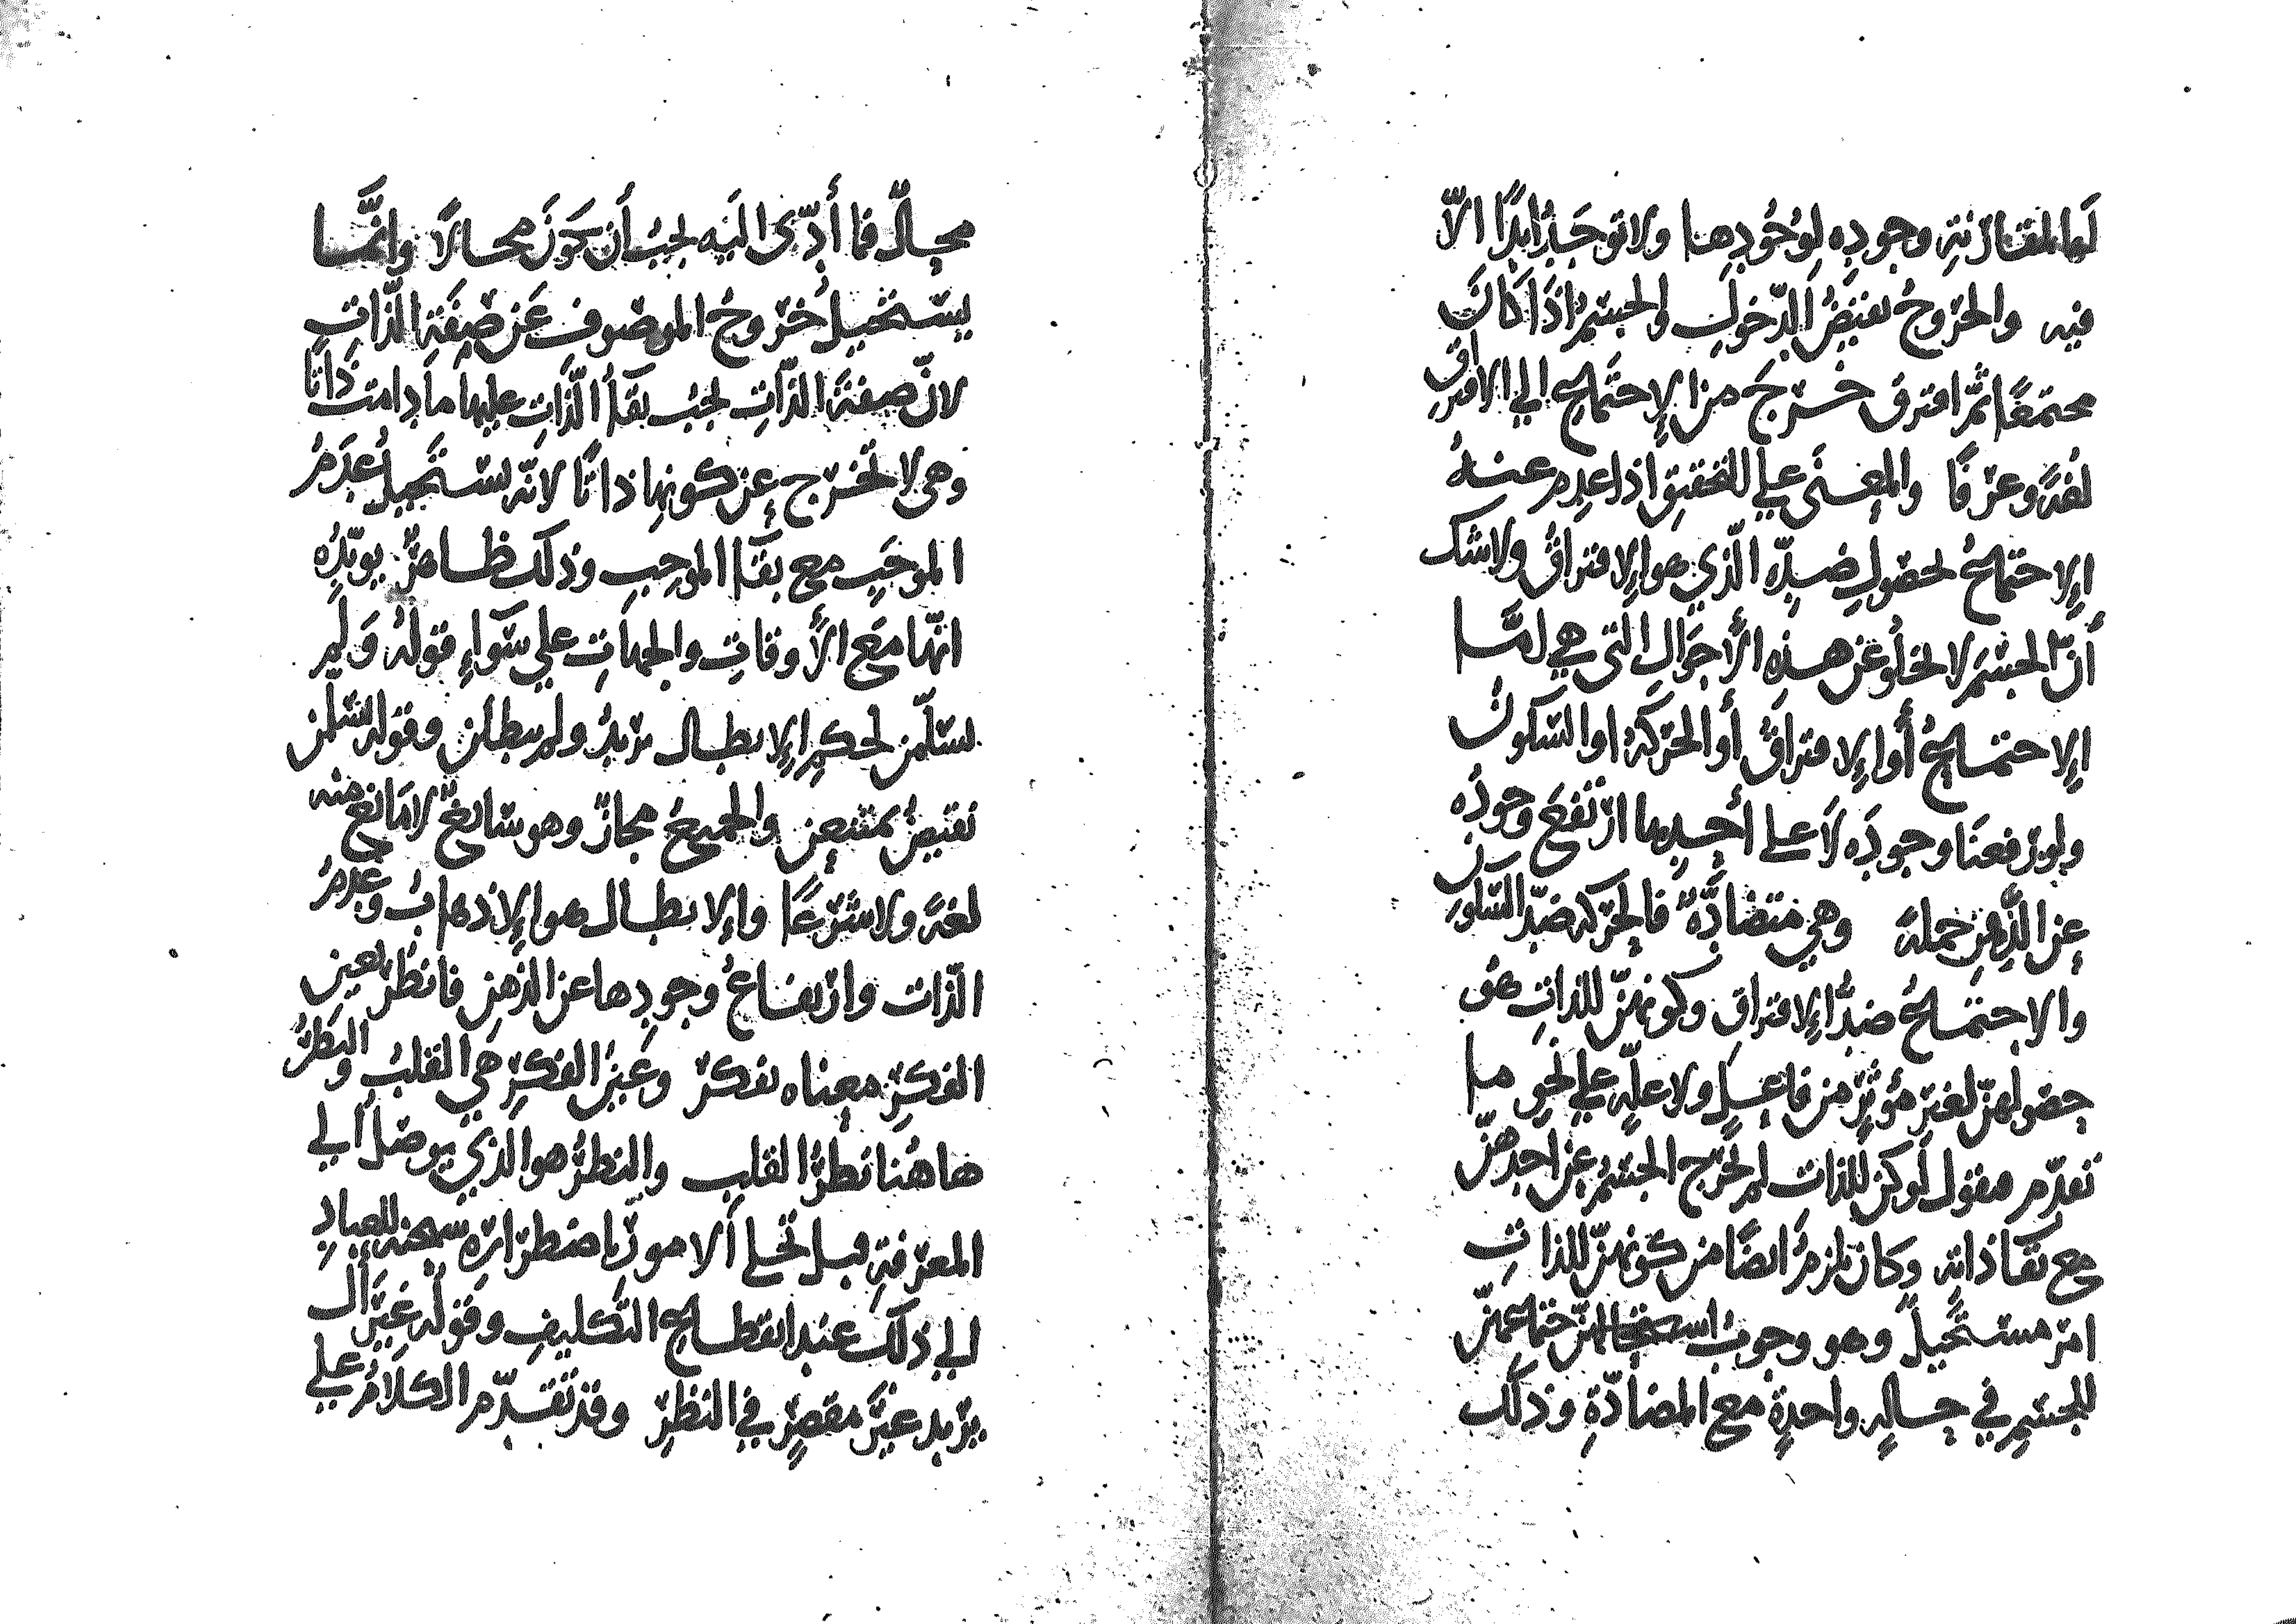 لها لمقارنة وجوده لوجودها ولا توجد ابدًا الاّ
فيه والخروج نقيض الدّخول والجسم اذا كان
مجتمعًا ثم افترق خرج من الاجتماع الى الافتراق
لغةً وعرفًا والمعنى على التحقيق اذا عدم عنه
الاجتماع لحصول ضدّه الّذي هو الافتراق ولا شك
أنّ الجسم لا يخلو عن هذه الأحوال التي هي
الاجتماع أو الافتراق أو الحركة او السّكون
ولو رفعنا وجوده لا على أحدهما ارتفع وجوده
عن الذّهن جملة وهي متضادّة فالحركة ضدّ السّكون
والاجتماع ضدّ الافتراق وكونهنّ للذات هو
حصولهنّ لغير مؤثر من فاعل ولا علّة على نحو ما
تقدّم فنقول لو كنّ للذات لم يخرج الجسم عن احدهنّ
مع بقاء ذاته وكان يلزم ايضًا من كونهنّ للذات
امر مستحيل وهو وجوب استحقاقهنّ جميعهنّ
للجسم في حالة واحدة مع المضادّة وذلك
محال فما أدّى اليه يجب أن يكون محالًا وانّما
يستحيل خروج الموصوف عن صفة الذّات
لانّ صفة الذّات يجب بقاء الذّات عليها ما دامت ذاتًا
وهي لا تخرج عن كونها ذاتًا لانّه يستحيل عدم
الموجَب مع بقاء الموجِب وذلك ظاهرٌ يؤيّده
انّها مع الأوقات والجهات على سواء قوله ولم
يسلمن لحكم الابطال يريد ولم يبطلن وقوله يسلمن
نقيض يمتنعن والجميع مجاز وهو سائغ لا مانع منه
لغة ولا شرعًا والابطال هو الاذهاب وعدم
الذّات وارتفاع وجودها عن الذهن فانظر بعين
الفكر معناه تفكر وعين الفكر هي القلب والنظر
هاهنا نظر القلب والنظر هو الذي يوصل الى
المعرفة قبل تجلي الامور باضطراره سبحنه للعباد
الى ذلك عند انقطاع التّكليف وقوله غير ال
يريد غير مقصر في النظر وقد تقدّم الكلام على